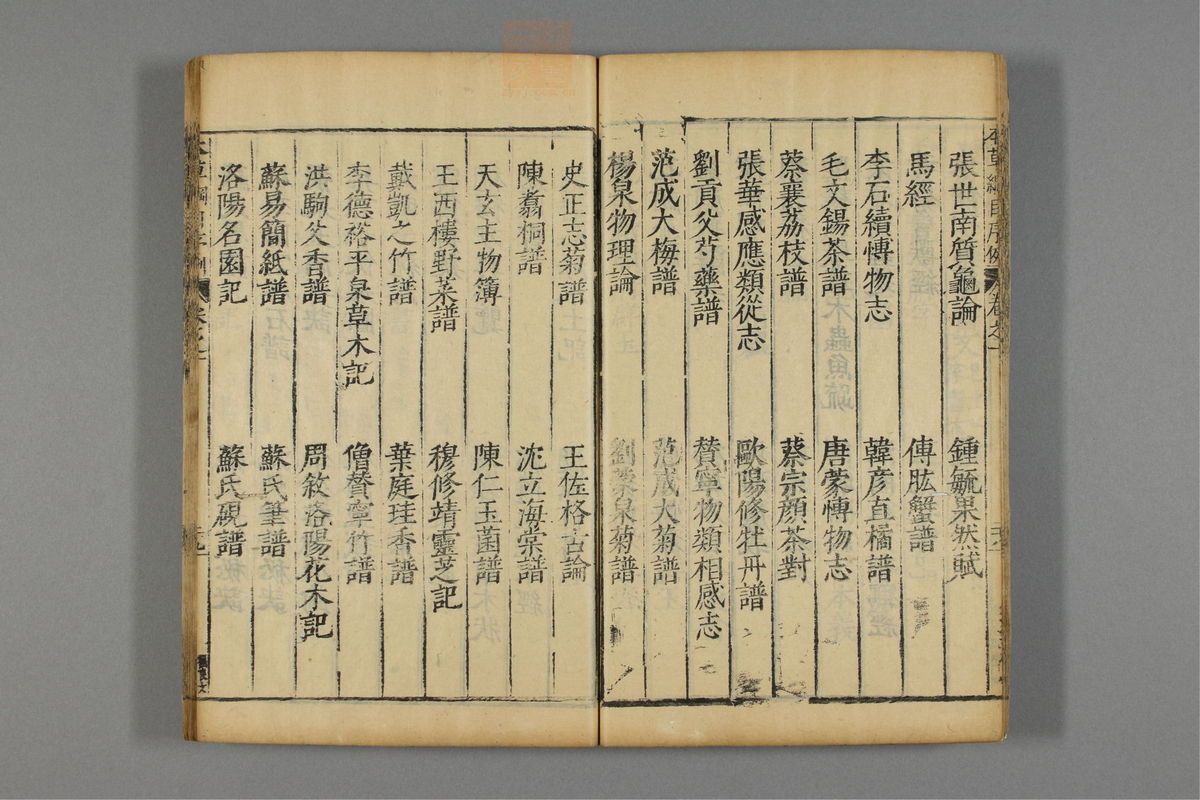 張世南質龜論　鍾毓果然賦
馬經　傅肱蟹譜
李石續愽物志　韓彦直橘譜
毛文錫茶譜　唐蒙愽物志
蔡襄荔枝譜　蔡宗顔茶對
張華感應類從志　歐陽修牡丹譜
劉貢父芍藥譜　賛寧物類相感志
范成大梅譜　范成大菊譜
楊泉物理論　劉蒙泉菊譜
史正志菊譜　王佐格古論
陳翥桐譜　沈立海棠譜
天玄主物簿　陳仁玉菌譜
王西樓野菜譜　穆修靖靈芝記
戴凱之竹譜　葉庭珪香譜
李德裕平泉草木記　僧賛寧竹譜
洪駒父香譜　周敘洛陽花木記
蘇易簡紙譜　蘇氏筆譜
洛陽名園記　蘇氏硯譜